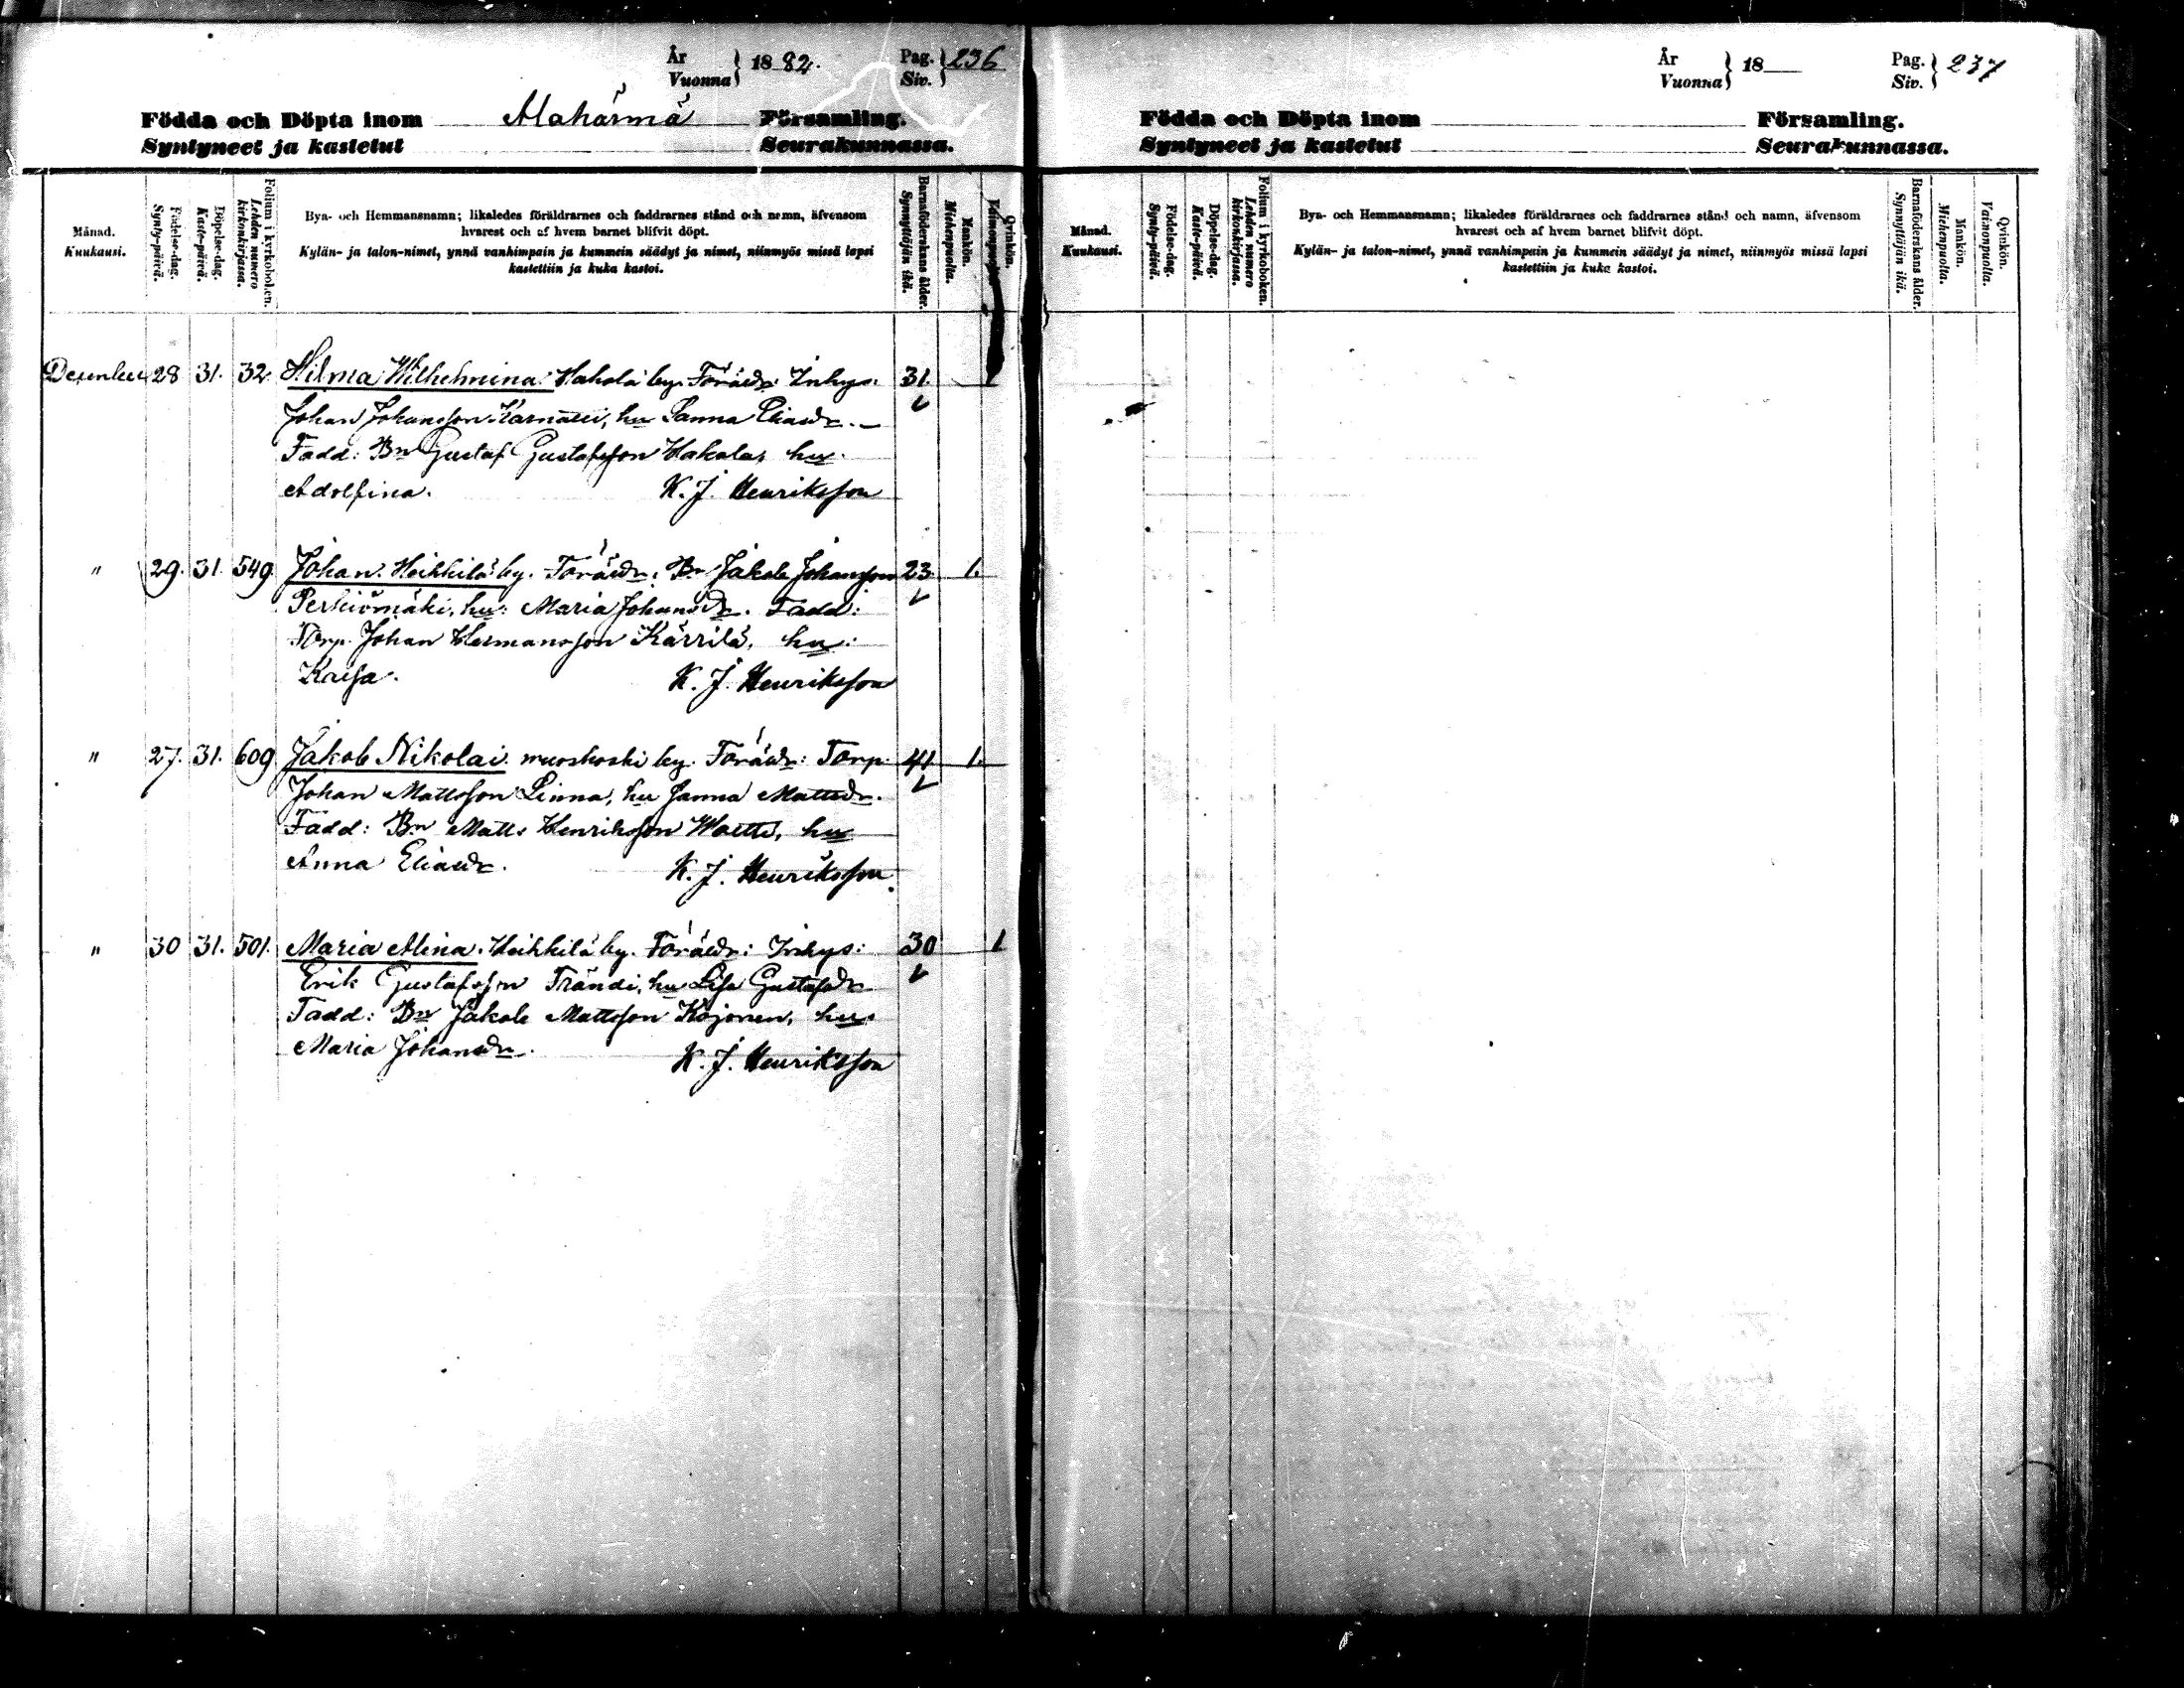 År
Vuonna } 1882.
Pag.
Siv. } 236
Födda och Döpta inom Alahärmä Församling.
Syntyneet ja kastetut Seurakunnassa.
Månad.
Kuukausi.
Födelse-dag.
Synty-päivä.
Döpelse-dag.
Kaste-päivä.
Folium i kyrkoboken.
Lehden numero
kirkonkirjassa.
Bya- och Hemmansnamn; likaledes föräldrarnes och faddrarnes stånd och namn, äfvensom
hvarest och af hvem barnet blifvit döpt.
Kylän- ja talon-nimet, ynnä vanhimpain ja kummein säädyt ja nimet, niinmyös missä lapsi
kastettiin ja kuka kastoi.
Barnaföderskans ålder.
Synnyttäjän ikä.
Mankön.
Miehenpuolta.
Qvinkön.
Vaimonpuolta.
December 28 31. 32. Hilma Wilhelmina Hakola by. Föräldr: Inhys: 31. 1
Johan Johansson, hu Sanna Eliasdr.
Fadd: Bn Gustaf Gustafsson Hakola, hu
Adolfina. K. J. Henriksson
" 29. 31. 549 Johan. Heikkilä by. Föräldr: Bn Jakob Johansson 23 1.
Perkiömäki, hu: Maria Johansdr. Fadd:
Torp. Johan Hermansson Kärrilä, hu:
Kaisa. K. J. Henriksson
" 27. 31. 609 Jakob Nikolai. by. Föräldr: Torp. 41 1.
Johan Mattsson Linna, hu Sanna Mattsdr.
Fadd: Bn Matts Henriksson, hu
Anna Eliasdr. K. J. Henriksson
" 30 31. 501. Maria Alina. Heikkilä by. Föräldr: Inhys: 30 1
Erik Gustafsson Trändi, hu Lisa Gustafsdr
Fadd: Bn Jakob Mattsson Kojonen, hu:
Maria Johansdr. K. J. Henriksson
År
Vuonna } 18
Pag.
Siv. } 237
Födda och Döpta inom Församling.
Syntyneet ja kastetut Seurakunnassa.
Månad.
Kuukausi.
Födelse-dag.
Synty-päivä.
Döpelse-dag.
Kaste-päivä.
Folium i kyrkoboken.
Lehden numero
kirkonkirjassa.
Bya- och Hemmansnamn; likaledes föräldrarnes och faddrarnes stånd och namn, äfvensom
hvarest och af hvem barnet blifvit döpt.
Kylän- ja talon-nimet, ynnä vanhimpain ja kummein säädyt ja nimet, niinmyös missä lapsi
kastettiin ja kuka kastoi.
Barnaföderskans ålder.
Synnyttäjän ikä.
Mankön.
Miehenpuolta.
Qvinkön.
Vaimonpuolta.